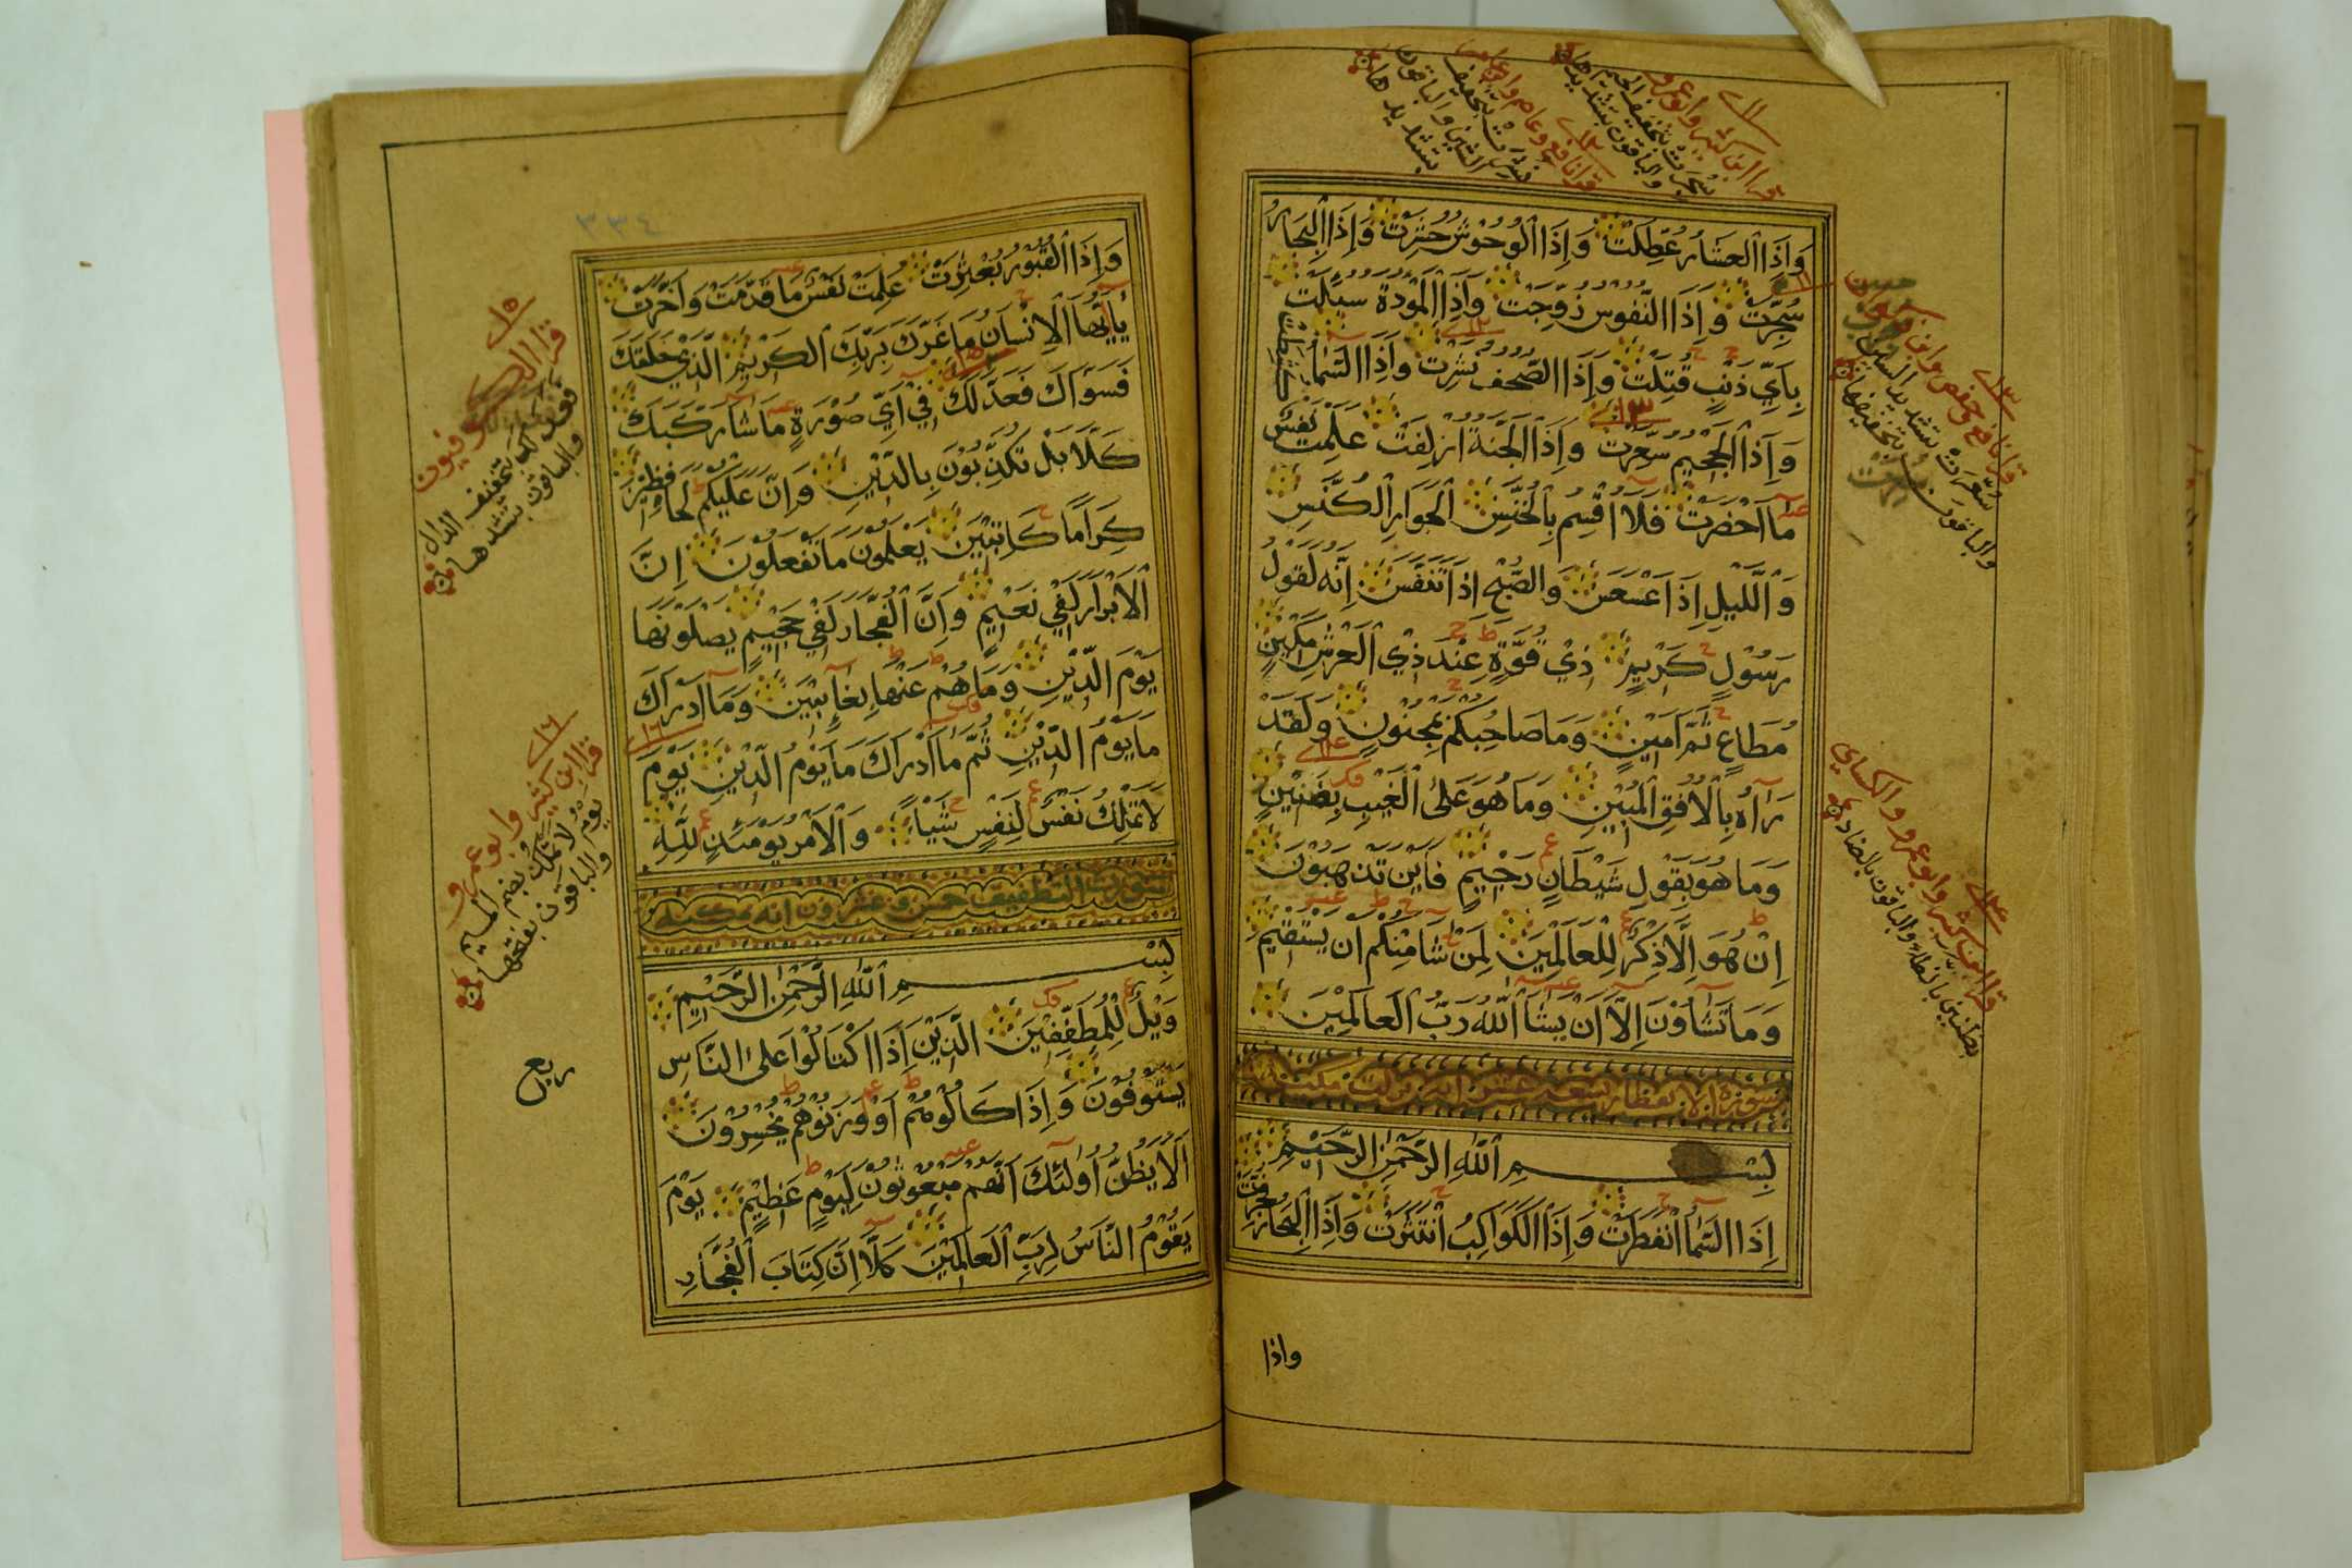 وَإِذَا الْعِشَارُ عُطِّلَتْ وَإِذَا الْوُحُوشُ حُشِرَتْ وَإِذَا الْبِحَارُ
سُجِّرَتْ وَإِذَا النُّفُوسُ زُوِّجَتْ وَإِذَا الْمَوْدَةُ سُئِلَتْ
بِأَيِّ ذَنْبٍ قُتِلَتْ وَإِذَا الصُّحُفُ نُشِرَتْ وَإِذَا السَّمَاءُ كُشِطَتْ
وَإِذَا الْجَحِيمُ سُعِّرَتْ وَإِذَا الْجَنَّةُ أُزْلِفَتْ عَلِمَتْ نَفْسٌ
مَا أَحْضَرَتْ فَلَا أُقْسِمُ بِالْخُنَّسِ الْجَوَارِ الْكُنَّسِ
وَالَّليْلِ إِذَا عَسْعَسَ وَالصُّبْحِ إِذَا تَنَفَّسَ إِنَّهُ لَقَوْلُ
رَسُوْلٍ كَرِيْمٍ ذِيْ قُوَّةٍ عِنْدَ ذِي الْعَرْشِ مَكِيْنٍ
مُطَاعٍ ثَمَّ أَمِيْنٍ وَمَا صَاحِبُكُمْ بِمَجْنُوْنٍ وَلَقَدْ
رَآهُ بِالْأُفُقِ الْمُبِيْنِ وَمَا هُوَ عَلَى الْغَيْبِ بِضَنِيْنٍ
وَمَا هُوَ بِقَوْلِ شَيْطَانٍ رَجِيْمٍ فَأَيْنَ تَذْهَبُوْنَ
إِنْ هُوَ إِلَّا ذِكْرٌ لِلْعَالَمِيْنَ لِمَنْ شَا مِنْكُمْ أَنْ يَسْتَقِيْمَ
وَمَا تَشَاؤُنَ إِلَّا أَنْ يَشَا اللهُ رَبُّ الْعَالَمِيْنَ
بِسْمِ اللهِ الرَّحْمٰنِ الرَّحِيْمِ
إِذَا السَّمَا انْفَطَرَتْ وَإِذَا الْكَوَاكِبُ انْتَثَرَتْ وَإِذَا الْبِحَارُ فُجِّرَتْ
واذا
قرا ابن كثير وابو عمرو
سجرت بتخفيف الجيم
والباقون بتشديدها
قرا نافع وعاصم وابن عامر
نشرت بتخفيف
الشين والباقون
بتشديدها
قرا نافع وحفص وابن ذكوان
سعرت بتشديد العين
والباقون بتخفيفها
قرا ابن كثير وابو عمرو والكساي
بظنين بالظاء والباقون بالضاد
٣٣٤
وَإِذَا الْقُبُوْرُ بُعْثِرَتْ عَلِمَتْ نَفْسٌ مَا قَدَّمَتْ وَأَخَّرَتْ
يَاأَيُّهَا الْإِنْسَانُ مَا غَرَّكَ بِرَبِّكَ الْكَرِيْمِ الَّذِيْ خَلَقَكَ
فَسَوَّاكَ فَعَدَّلَكَ فِيْ أَيِّ صُوْرَةٍ مَا شَا رَكَّبَكَ
كَلَّا بَلْ تُكَذِّبُوْنَ بِالدِّيْنِ وَإِنَّ عَلَيْكُمْ لَحَافِظِيْنَ
كِرَامًا كَاتِبِيْنَ يَعْلَمُوْنَ مَا تَفْعَلُوْنَ إِنَّ
الْأَبْرَارَ لَفِيْ نَعِيْمٍ وَإِنَّ الْفُجَّارَ لَفِيْ جَحِيْمٍ يَصْلَوْنَهَا
يَوْمَ الدِّيْنِ وَمَا هُمْ عَنْهَا بِغَائِبِيْنَ وَمَا أَدْرَاكَ
مَا يَوْمُ الدِّيْنِ ثُمَّ مَا أَدْرَاكَ مَا يَوْمُ الدِّيْنِ يَوْمَ
لَا تَمْلِكُ نَفْسٌ لِنَفْسٍ شَيْأً وَالْأَمْرُ يَوْمَئِذٍ لِلّٰهِ
بِسْمِ اللهِ الرَّحْمٰنِ الرَّحِيْمِ
وَيْلٌ لِلْمُطَفِّفِيْنَ الَّذِيْنَ إِذَا اكْتَالُوْا عَلَى النَّاسِ
يَسْتَوْفُوْنَ وَإِذَا كَالُوْهُمْ أَوْ وَزَنُوْهُمْ يُخْسِرُوْنَ
أَلَا يَظُنُّ أُولٰئِكَ أَنَّهُمْ مَبْعُوْثُوْنَ لِيَوْمٍ عَظِيْمٍ يَوْمَ
يَقُوْمُ النَّاسُ لِرَبِّ الْعَالَمِيْنَ كَلَّا إِنَّ كِتَابَ الْفُجَّارِ
قرا الكوفيون
فعدلك بتخفيف الدال
والباقون بتشديدها
قرا ابن كثير وابو عمرو
يوم لا تملك بضم الميم
والباقون بفتحها
ربع